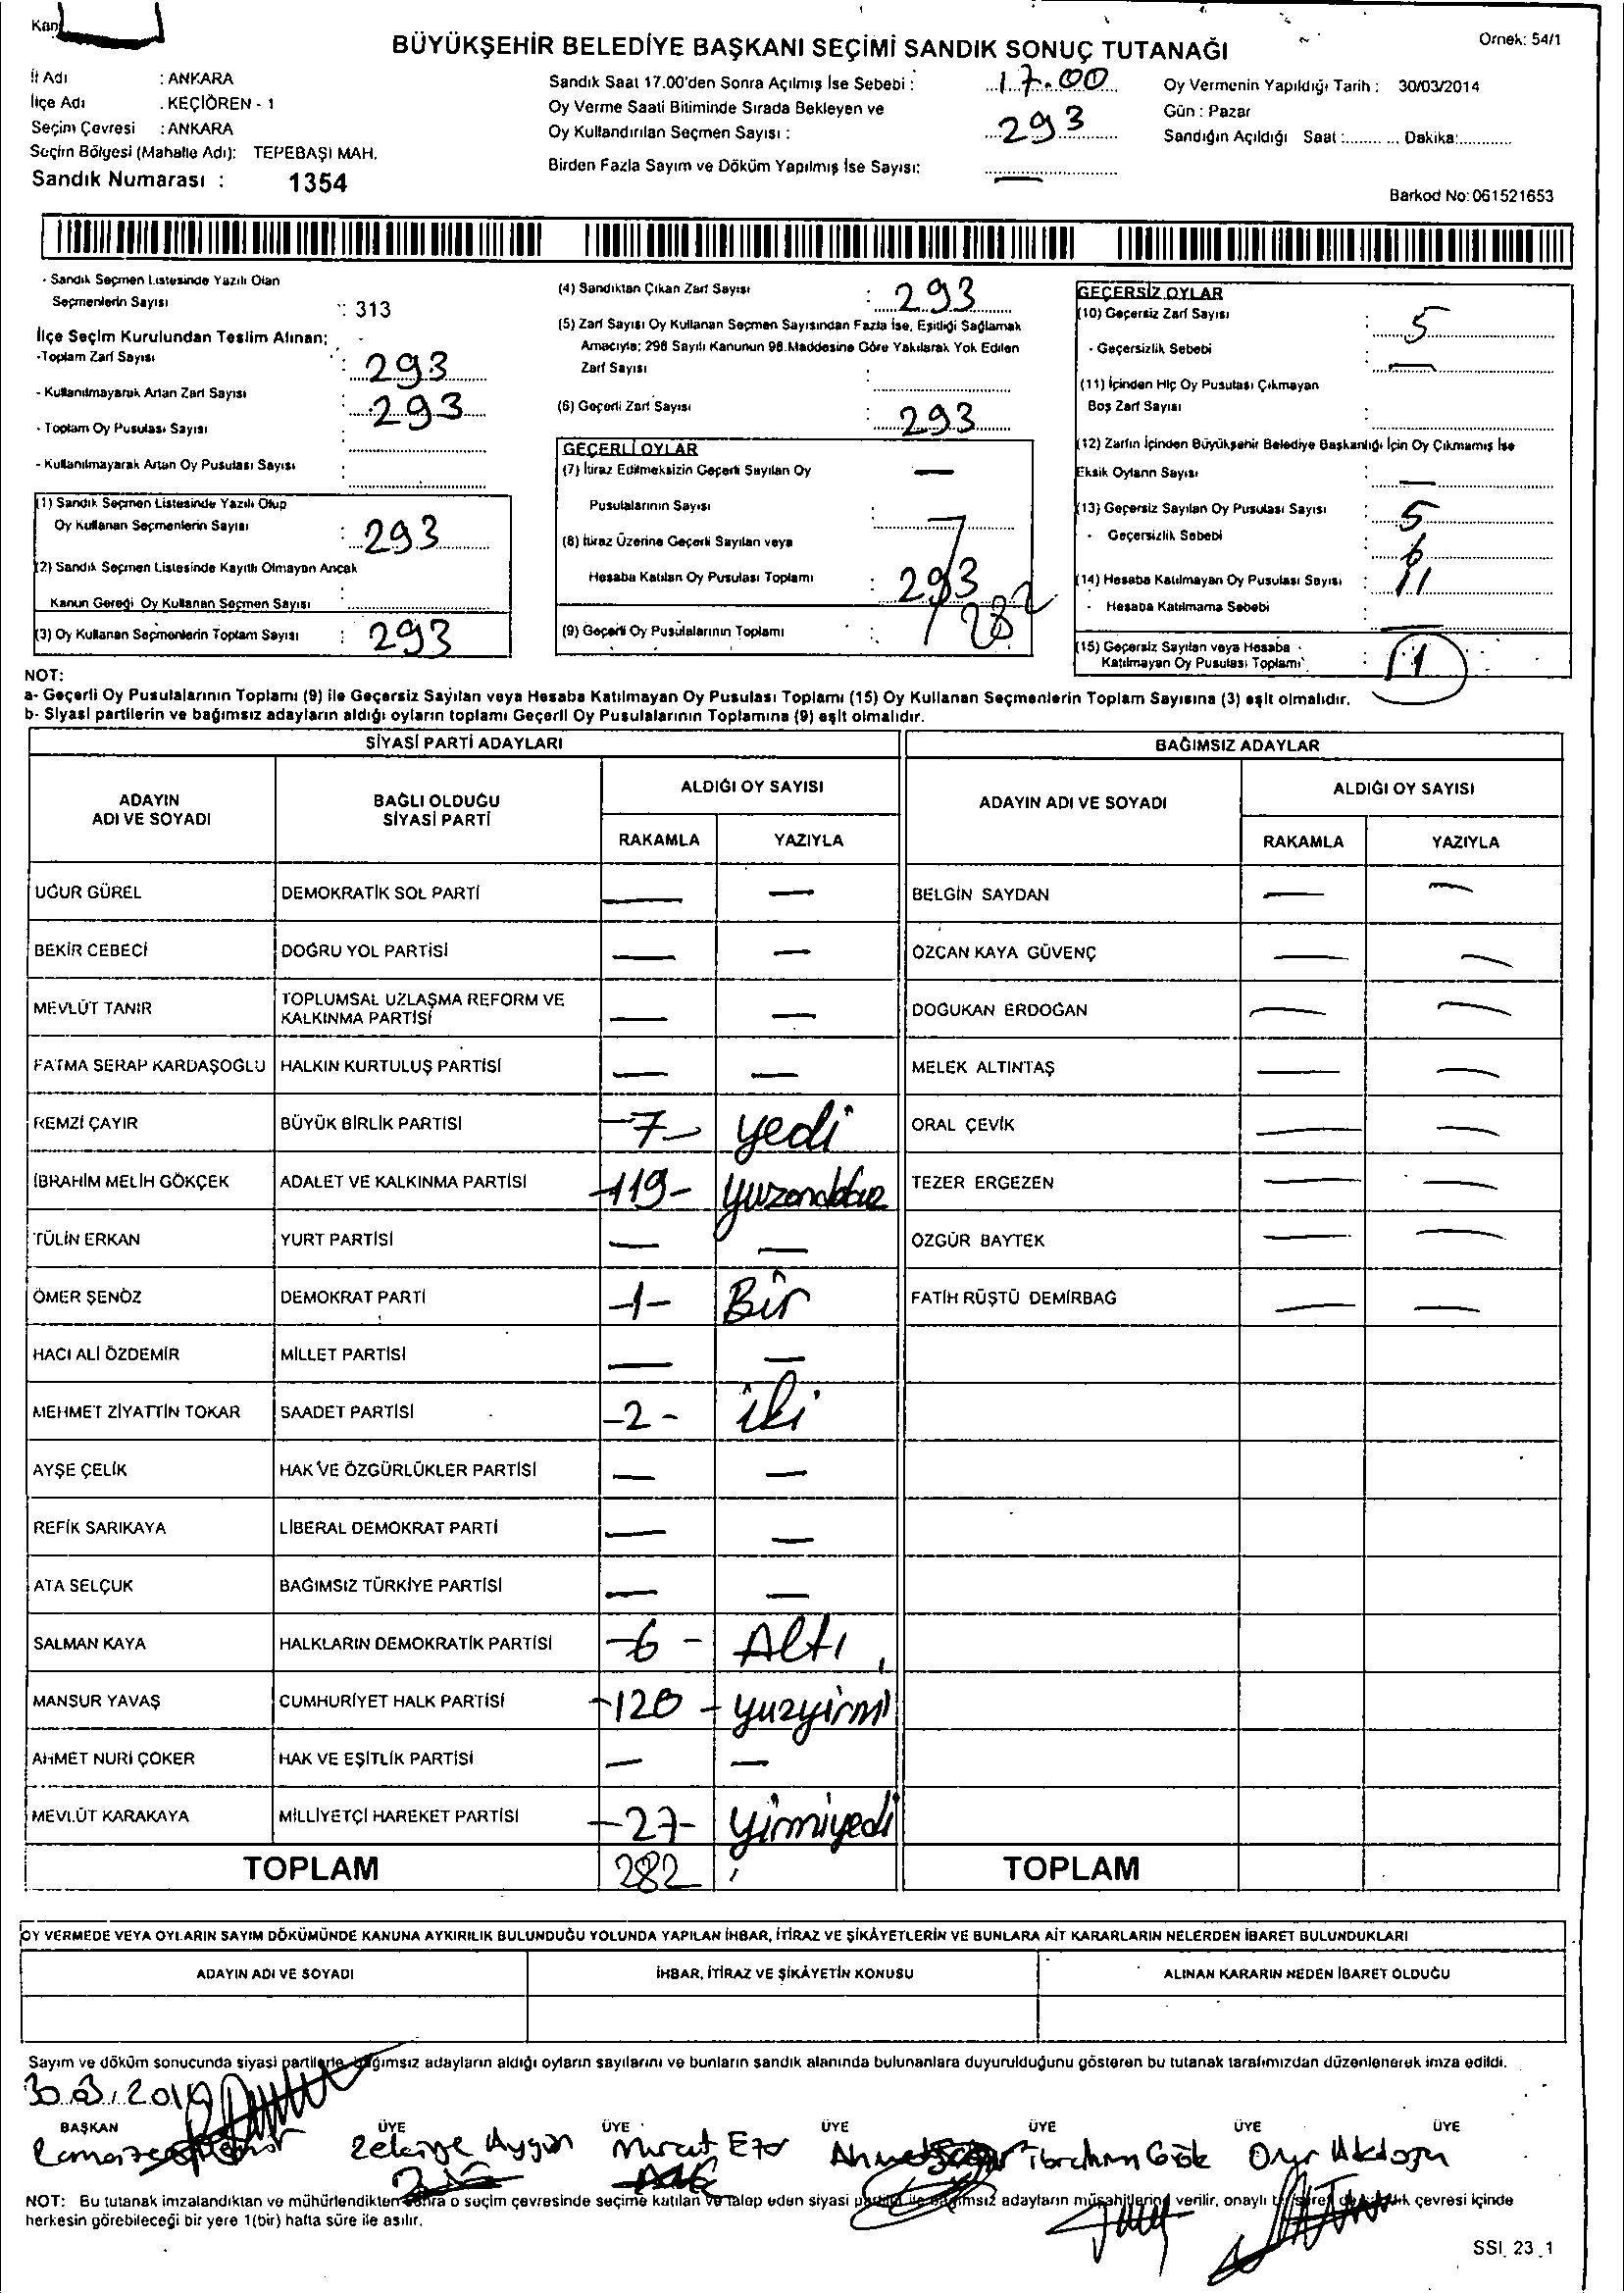 BÜYÜKŞEHİR BELEDİYE BAŞKANI SEÇİMİ SANDIK SONUÇ TUTANAĞI
Örnek: 54/1
İl Adı : ANKARA
İlçe Adı : KEÇİÖREN - 1
Seçim Çevresi : ANKARA
Seçim Bölgesi (Mahalle Adı): TEPEBAŞI MAH.
Sandık Numarası : 1354
Sandık Saat 17.00'den Sonra Açılmış İse Sebebi : 17.00
Oy Verme Saati Bitiminde Sırada Bekleyen ve
Oy Kullandırılan Seçmen Sayısı : 293
Birden Fazla Sayım ve Döküm Yapılmış İse Sayısı: —
Oy Vermenin Yapıldığı Tarih : 30/03/2014
Gün : Pazar
Sandığın Açıldığı Saat :............ Dakika:............
Barkod No: 061521653
- Sandık Seçmen Listesinde Yazılı Olan
Seçmenlerin Sayısı : 313
İlçe Seçim Kurulundan Teslim Alınan;
-Toplam Zarf Sayısı : 293
- Kullanılmayarak Artan Zarf Sayısı : 293
- Toplam Oy Pusulası Sayısı :
- Kullanılmayarak Artan Oy Pusulası Sayısı :
(1) Sandık Seçmen Listesinde Yazılı Olup
Oy Kullanan Seçmenlerin Sayısı : 293
(2) Sandık Seçmen Listesinde Kayıtlı Olmayan Ancak
Kanun Gereği Oy Kullanan Seçmen Sayısı :
(3) Oy Kullanan Seçmenlerin Toplam Sayısı : 293
(4) Sandıktan Çıkan Zarf Sayısı : 293
(5) Zarf Sayısı Oy Kullanan Seçmen Sayısından Fazla İse, Eşitliği Sağlamak
Amacıyla; 298 Sayılı Kanunun 98.Maddesine Göre Yakılarak Yok Edilen
Zarf Sayısı :
(6) Geçerli Zarf Sayısı : 293
GEÇERLİ OYLAR
(7) İtiraz Edilmeksizin Geçerli Sayılan Oy —
Pusulalarının Sayısı :
(8) İtiraz Üzerine Geçerli Sayılan veya
Hesaba Katılan Oy Pusulası Toplamı : 293
(9) Geçerli Oy Pusulalarının Toplamı : 282
GEÇERSİZ OYLAR
(10) Geçersiz Zarf Sayısı : 5
- Geçersizlik Sebebi : —
(11) İçinden Hiç Oy Pusulası Çıkmayan
Boş Zarf Sayısı :
(12) Zarfın İçinden Büyükşehir Belediye Başkanlığı İçin Oy Çıkmamış İse
Eksik Oyların Sayısı : —
(13) Geçersiz Sayılan Oy Pusulası Sayısı : 5
- Geçersizlik Sebebi : 6
(14) Hesaba Katılmayan Oy Pusulası Sayısı : 11
- Hesaba Katılmama Sebebi : —
(15) Geçersiz Sayılan veya Hesaba
Katılmayan Oy Pusulası Toplamı : 11
NOT:
a- Geçerli Oy Pusulalarının Toplamı (9) ile Geçersiz Sayılan veya Hesaba Katılmayan Oy Pusulası Toplamı (15) Oy Kullanan Seçmenlerin Toplam Sayısına (3) eşit olmalıdır.
b- Siyasi partilerin ve bağımsız adayların aldığı oyların toplamı Geçerli Oy Pusulalarının Toplamına (9) eşit olmalıdır.
SİYASİ PARTİ ADAYLARI
ADAYIN ADI VE SOYADI BAĞLI OLDUĞU SİYASİ PARTİ ALDIĞI OY SAYISI
RAKAMLA YAZIYLA
UĞUR GÜREL DEMOKRATİK SOL PARTİ — —
BEKİR CEBECİ DOĞRU YOL PARTİSİ — —
MEVLÜT TANIR TOPLUMSAL UZLAŞMA REFORM VE KALKINMA PARTİSİ — —
FATMA SERAP KARDAŞOĞLU HALKIN KURTULUŞ PARTİSİ — —
REMZİ ÇAYIR BÜYÜK BİRLİK PARTİSİ -7- yedi
İBRAHİM MELİH GÖKÇEK ADALET VE KALKINMA PARTİSİ -119-
TÜLİN ERKAN YURT PARTİSİ — —
ÖMER ŞENÖZ DEMOKRAT PARTİ -1- Bir
HACI ALİ ÖZDEMİR MİLLET PARTİSİ — —
MEHMET ZİYATTİN TOKAR SAADET PARTİSİ -2- iki
AYŞE ÇELİK HAK VE ÖZGÜRLÜKLER PARTİSİ — —
REFİK SARIKAYA LİBERAL DEMOKRAT PARTİ — —
ATA SELÇUK BAĞIMSIZ TÜRKİYE PARTİSİ — —
SALMAN KAYA HALKLARIN DEMOKRATİK PARTİSİ -6- Altı
MANSUR YAVAŞ CUMHURİYET HALK PARTİSİ -120- yuzyirmi
AHMET NURİ ÇOKER HAK VE EŞİTLİK PARTİSİ — —
MEVLÜT KARAKAYA MİLLİYETÇİ HAREKET PARTİSİ -27- yirmiyedi
TOPLAM 282
BAĞIMSIZ ADAYLAR
ADAYIN ADI VE SOYADI ALDIĞI OY SAYISI
RAKAMLA YAZIYLA
BELGİN SAYDAN — —
ÖZCAN KAYA GÜVENÇ — —
DOĞUKAN ERDOĞAN — —
MELEK ALTINTAŞ — —
ORAL ÇEVİK — —
TEZER ERGEZEN — —
ÖZGÜR BAYTEK — —
FATİH RÜŞTÜ DEMİRBAĞ — —
TOPLAM
OY VERMEDE VEYA OYLARIN SAYIM DÖKÜMÜNDE KANUNA AYKIRILIK BULUNDUĞU YOLUNDA YAPILAN İHBAR, İTİRAZ VE ŞİKÂYETLERİN VE BUNLARA AİT KARARLARIN NELERDEN İBARET BULUNDUKLARI
ADAYIN ADI VE SOYADI İHBAR, İTİRAZ VE ŞİKÂYETİN KONUSU ALINAN KARARIN NEDEN İBARET OLDUĞU
Sayım ve döküm sonucunda siyasi partilerle bağımsız adayların aldığı oyların sayılarını ve bunların sandık alanında bulunanlara duyurulduğunu gösteren bu tutanak tarafımızdan düzenlenerek imza edildi.
BAŞKAN ÜYE ÜYE ÜYE ÜYE ÜYE ÜYE
Zekiye Aygün Murat Ahmet İbrahim Gök Onur
NOT: Bu tutanak imzalandıktan ve mühürlendikten sonra o seçim çevresinde seçime katılan ve talep eden siyasi partiler ile bağımsız adayların müşahitlerine verilir, onaylı bir sureti de sandık çevresi içinde
herkesin görebileceği bir yere 1(bir) hafta süre ile asılır.
SSI_23_1